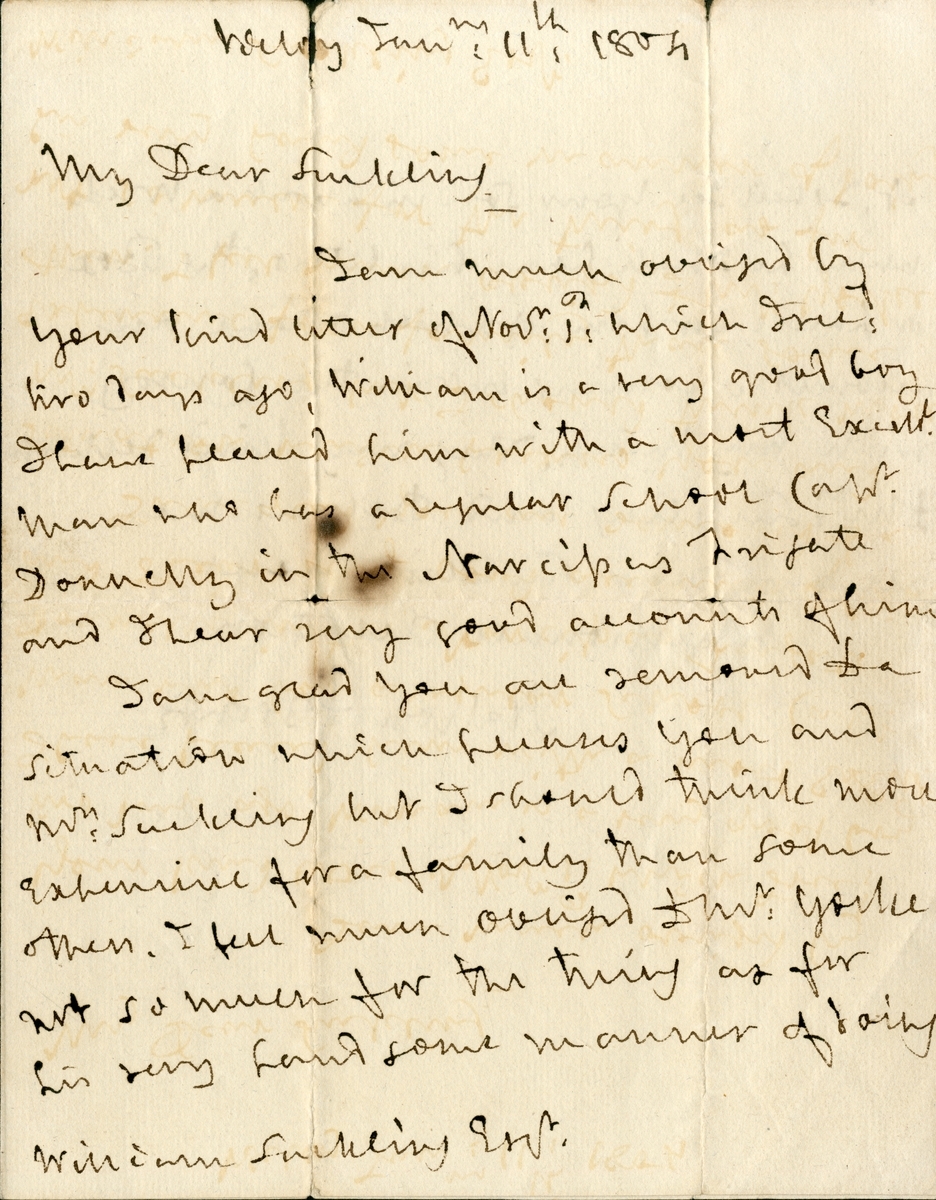 Victory Jany: 11th: 1804
My Dear Suckling
I am much obliged by
your kind letter of Novr: 1st: which I recd:
two days ago, William is a very good boy
I have placed him with a most Excellt.
Man who has a regular School Capt.
Donnelly in the Narcissus Frigate
and I hear very good accounts of him
I am glad you are removed to a
situation which pleases you and
Mrs: Suckling but I should think more
Expensive for a family than some
others. I feel much obliged to Mr: Yorke
not so much for the thing as for
his very handsome manner of doing
William Suckling Esqr.